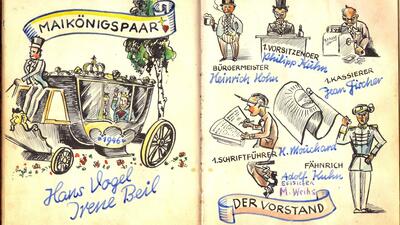 MAIKÖNIGSPAAR
1946
Hans Vogel
Irene Beil
1. VORSITZENDER
Philipp Kuhn
BÜRGERMEISTER
Heinrich Hohn
1. KASSIERER
Jean Fischer
1. SCHRIFTFÜHRER
K. Mouchard
FÄHNRICH
Adolf Kuhn
M. Weihs
DER VORSTAND